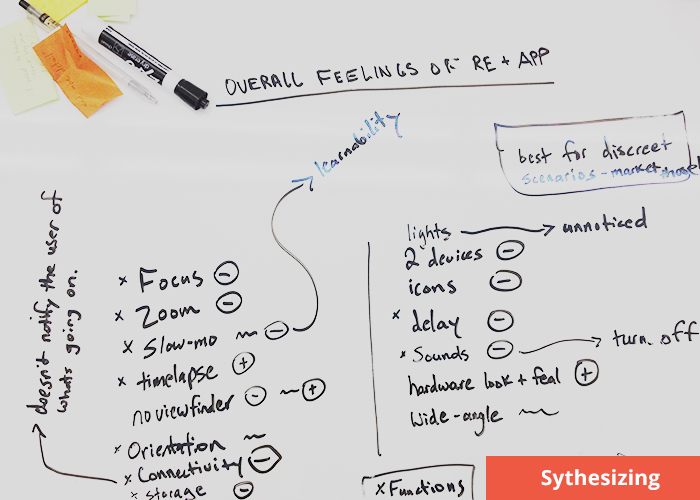 OVERALL FEELINGS OF RE + APP
learnability
best for discreet
scenarios - market those
doesn't notify the user of
whats going on.
x Focus -
x Zoom -
x Slow-mo ~ -
x timelapse +
no viewfinder - ~ +
x Orientation ~
x Connectivity -
x storage -
lights → unnoticed
2 devices -
icons -
x delay -
x Sounds - → turn off
hardware look + feal +
Wide-angle ~
x Functions
Sythesizing